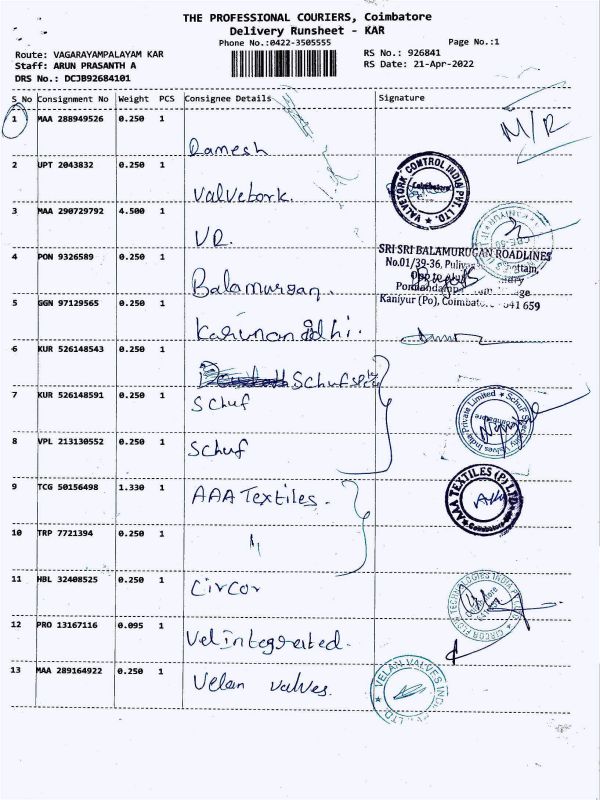 THE PROFESSIONAL COURIERS, Coimbatore
Delivery Runsheet - KAR
Phone No.:0422-3505555
Page No.:1
Route: VAGARAYAMPALAYAM KAR
RS No.: 926841
Staff: ARUN PRASANTH A
RS Date: 21-Apr-2022
DRS No.: DCJB92684101
S_No Consignment No Weight PCS Consignee Details Signature
1 MAA 288949526 0.250 1
M/R
Ramesh
2 UPT 2043832 0.250 1
Valvetork.
VALVETORK CONTROL INDIA PVT. LTD.
Coimbatore
3 MAA 290729792 4.500 1
VR.
4 PON 9326589 0.250 1
Balamurgan.
SRI SRI BALAMURUGAN ROADLINES
No.01/39-36,
Kaniyur (Po), Coimbatore - 641 659
5 GGN 97129565 0.250 1
Karunanidhi.
6 KUR 526148543 0.250 1
Schuf
7 KUR 526148591 0.250 1
Schuf
Schuf Speciality Valves India Private Limited
Coimbatore
8 VPL 213130552 0.250 1
Schuf
9 TCG 50156498 1.330 1
AAA Textiles.
AAA TEXTILES (P) LTD
10 TRP 7721394 0.250 1
"
11 HBL 32408525 0.250 1
Circor
CIRCOR FLOW TECHNOLOGIES INDIA PVT. LTD.
12 PRO 13167116 0.095 1
Vel integrated.
13 MAA 289164922 0.250 1
Velan valves.
VELAN VALVES INDIA PVT. LTD.